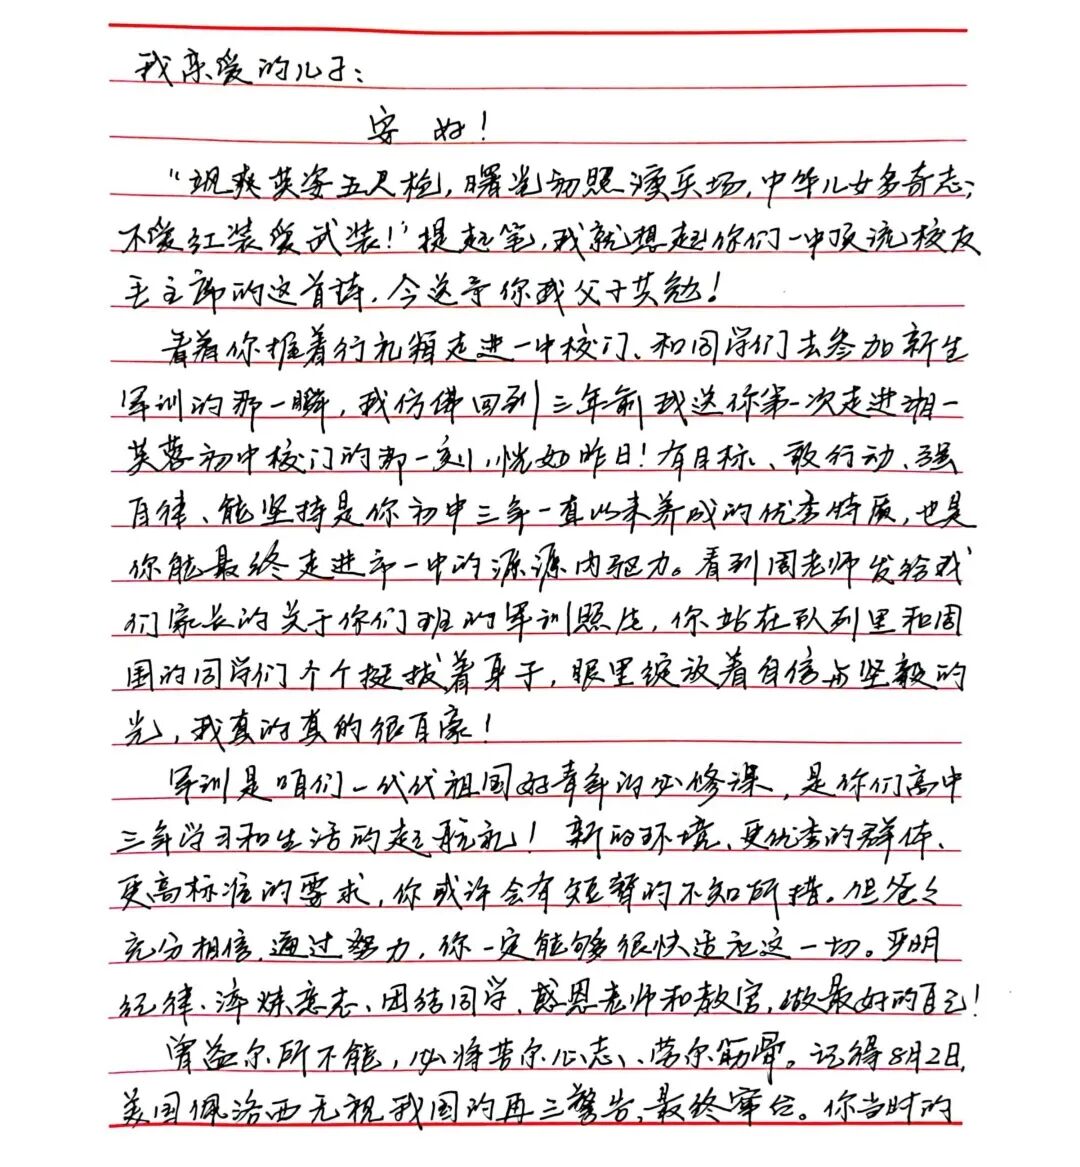 我亲爱的儿子：
安好！
“飒爽英姿五尺枪，曙光初照演兵场，中华儿女多奇志，
不爱红装爱武装！”提起笔，我就想起你们一中顶流校友
毛主席的这首诗，今送予你我父子共勉！
看着你握着行礼箱走进一中校门、和同学们去参加新生
军训的那一瞬，我仿佛回到三年前我送你第一次走进湘一
芙蓉初中校门的那一刻，恍如昨日！有目标、敢行动、强
自律、能坚持是你初中三年一直以来养成的优秀特质，也是
你能最终走进市一中的源源内驱力。看到周老师发给我
们家长的关于你们班的军训照片，你站在队列里和周
围的同学们个个挺拔着身子，眼里绽放着自信与坚毅的
光，我真的真的很自豪！
军训是咱们一代代祖国好青年的必修课，是你们高中
三年学习和生活的起航礼！新的环境、更优秀的群体、
更高标准的要求，你或许会有短暂的不知所措。但爸々
充分相信，通过努力，你一定能够很快适应这一切。严明
纪律、淬炼意志、团结同学、感恩老师和教官，做最好的自己！
曾益尔所不能，必将苦尔心志、劳尔筋骨。记得8月2日，
美国佩洛西无视我国的再三警告，最终窜台。你当时的